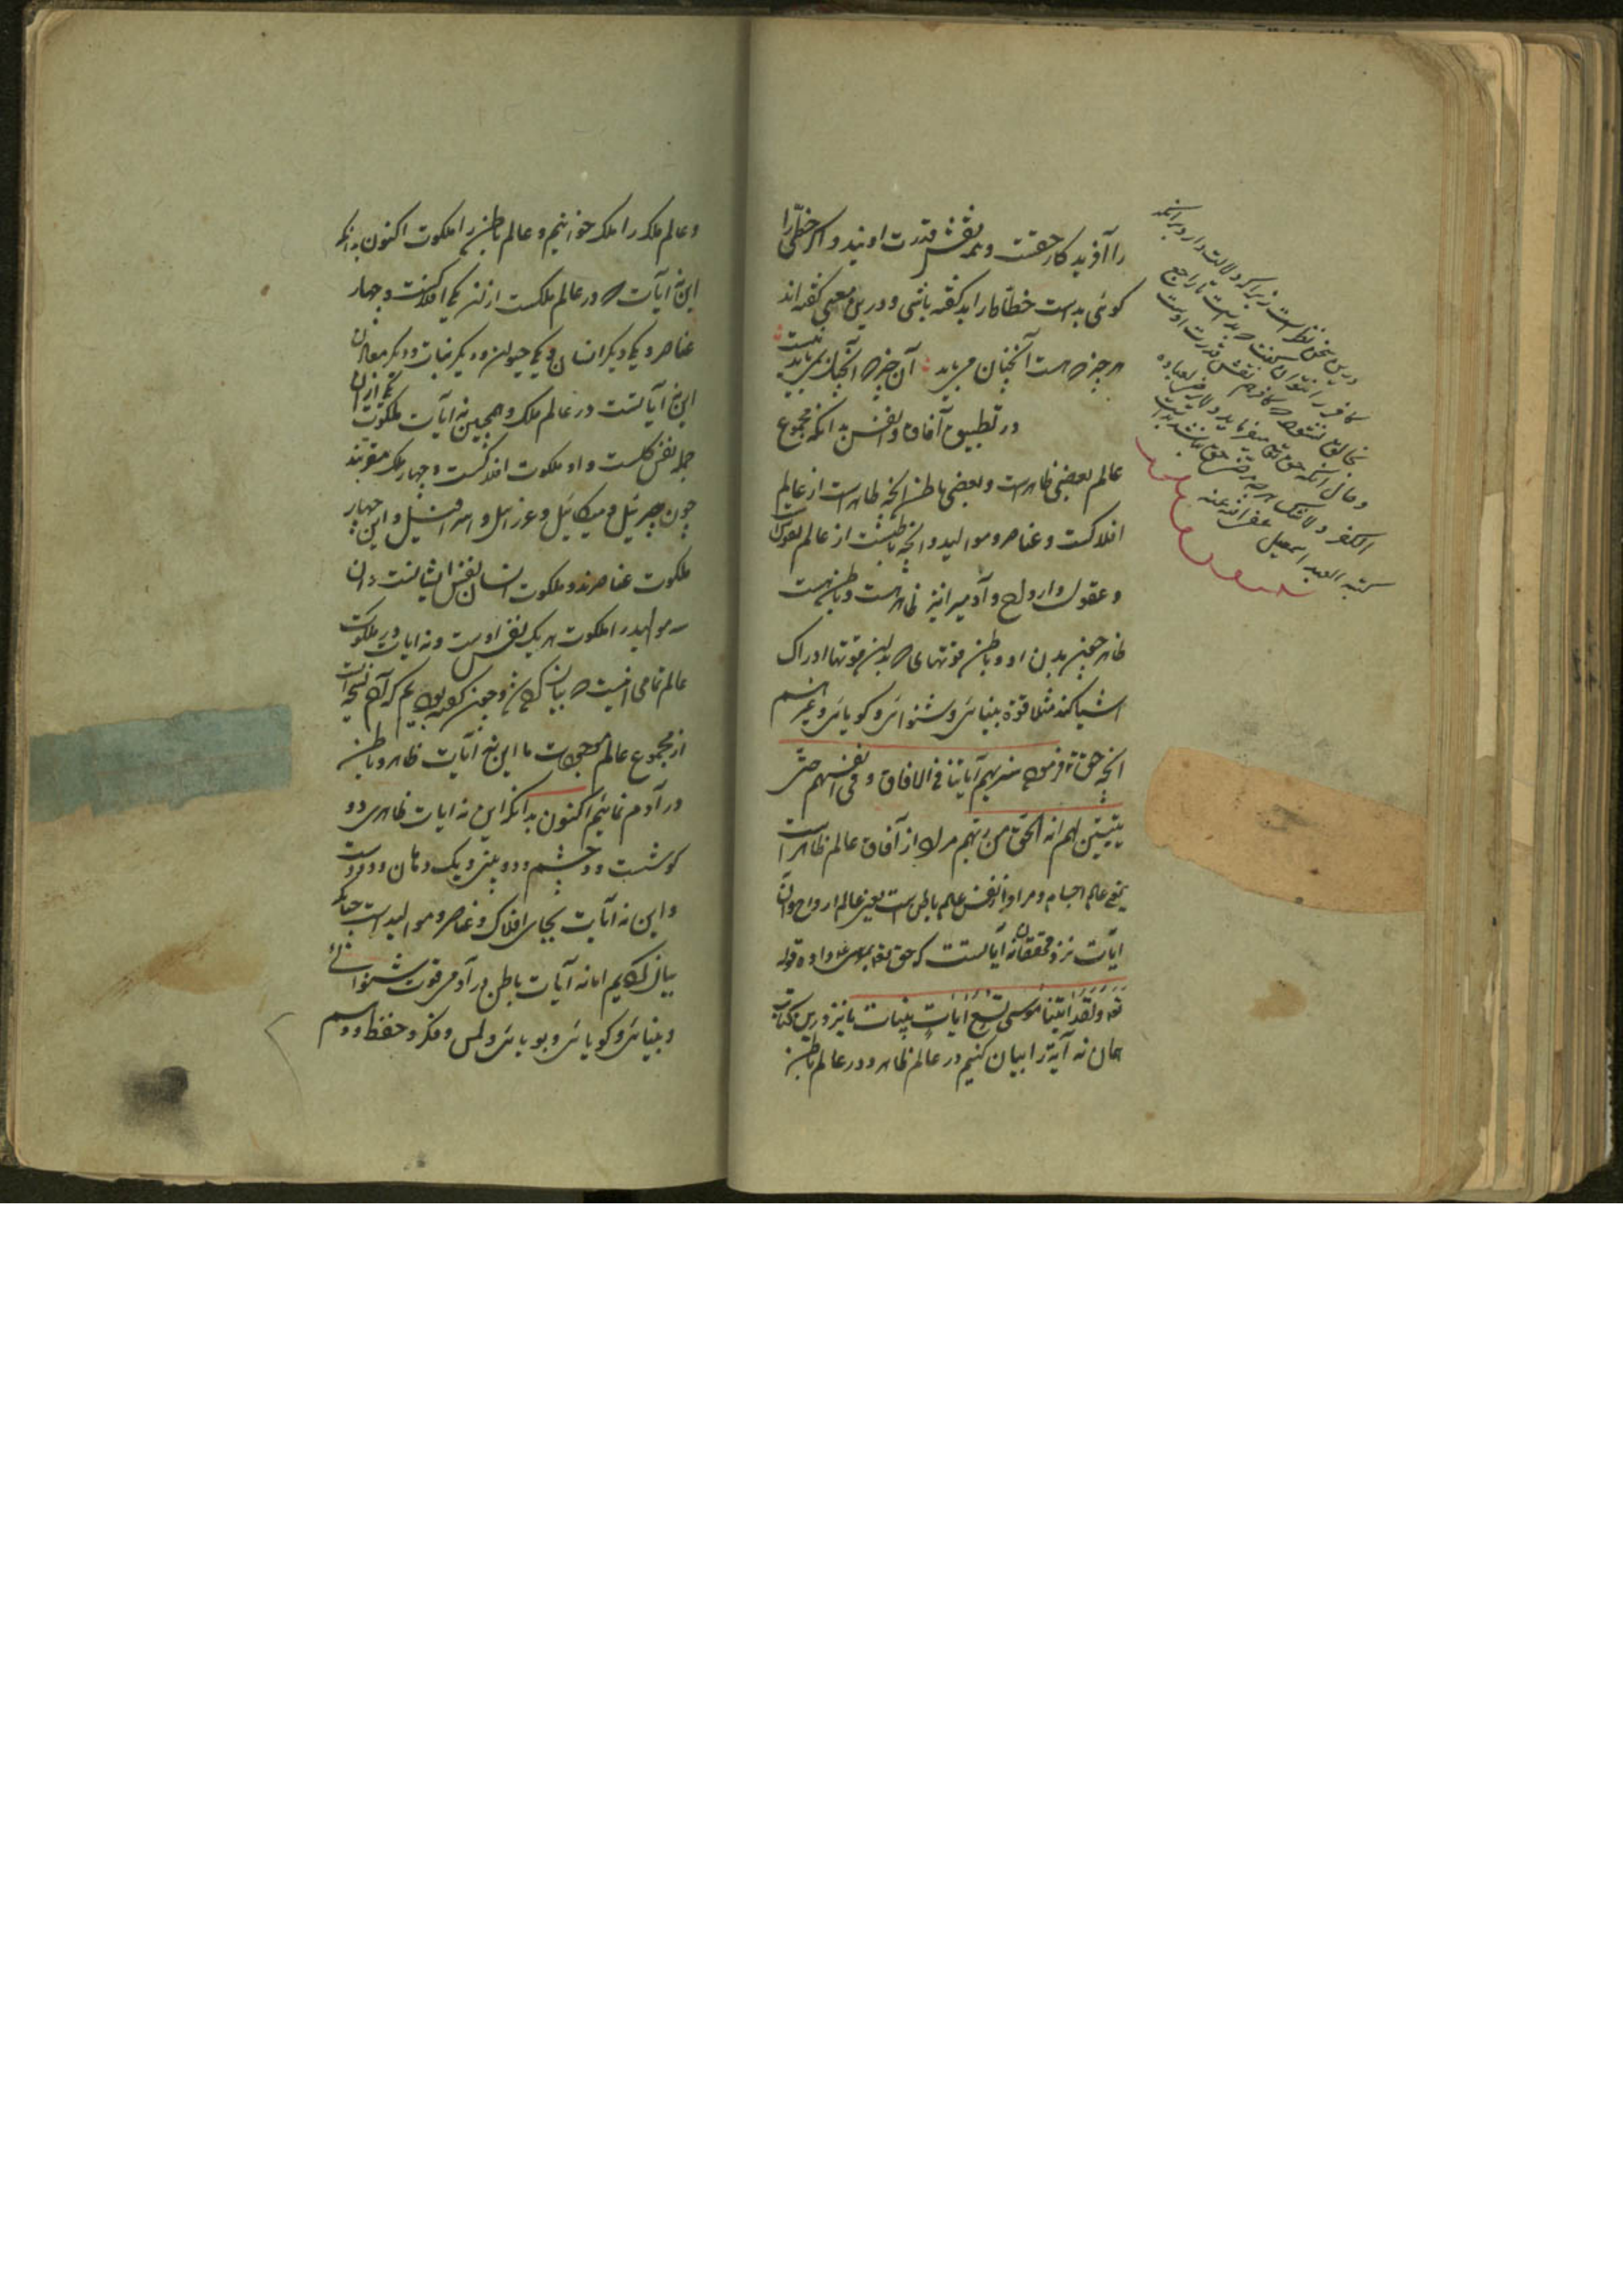 را آفریدکار حقست و همه نقش قدرت اویند و اکر خطّی را
کوئی بد است خطّاط را بد کفته باشی و درین معنی کفته اند
هر چیز که هست آنچنان می باید آن چیز که آنچنان نمی باید نیست
در تطبیق آفاق و انفس بدانکه مجموع
عالم بعضی ظاهر است و بعضی باطن آنچه ظاهر است از عالم
افلاکست و عناصر و موالید و آنچه باطنست از عالم نفوس
و عقول و ارواح و آدمی را نیز ظاهر هست و باطن هست
ظاهر چنین بدن او و باطن قوتهای که بدین قوتها ادراک
اشیا کند مثلا قوة بینائی و شنوائی و کویائی و غیر
آنچه حق تع فرموده سنریهم آیاتنا فی الافاق و فی انفسهم حتی
یتبیّن لهم انه الحق من ربهم مراد از آفاق عالم ظاهر است
یعنی عالم اجسام و مراد از انفس عالم باطن است یعنی عالم ارواح و آن
آیات نزد محققان نه آیاتست که حق تع بموسی داده قوله
تع ولقد آتینا موسی تسع آیات بینات ما نیز درین کتاب
همان نه آیة را بیان کنیم در عالم ظاهر و در عالم باطن
درین سخن نظر است زیرا که دلالت دارد بر آنکه
کافر را نتوان کفت که بد است تا راجع
بخالق نشود که کافر هم نقش قدرت اوست
و حال آنکه حق تع میفرماید و لا یرضی لعباده
الکفر و لا شک هر چه مرضی حق نباشد بد است
کتبه العبد اسمعیل عفی الله عنه
و عالم ملک را ملک خوانیم و عالم باطن را ملکوت اکنون بدانکه
این نه آیات که در عالم ملکست از آن یکی افلاکست و چهار
عناصر و یکی دیکر انسان و یکی حیوان و دیکر نبات و دیکر معادن
این نه آیاتست در عالم ملک و همچنین نه آیات ملکوت یکی از آن
جمله نفس کلست و او ملکوت افلاکست و چهار ملک مقربند
چون جبرئیل و میکائیل و عزرائیل و اسرافیل و این چهار
ملکوت عناصرند و ملکوت انسان نفس ایشانست و آن
سه موالید را ملکوت هر یک نفس اوست و نه آیات در ملکوت
عالم تمامی اینست که بیان کرده شد و چون کفته بودیم که آدم نسخه است
از مجموع عالم ما این نه آیات ظاهر و باطن
در آدم نمائیم اکنون بدانکه این نه آیات ظاهری دو
کوشست و دو چشم و دو بینی و یک دهان و دو دست
و این نه آیات بجای افلاک و عناصر و موالید است چنانکه
بیان کردیم اما نه آیات باطن در آدمی قوت شنوائی
و بینائی و کویائی و بویائی و لمس و فکر و حفظ و وهم